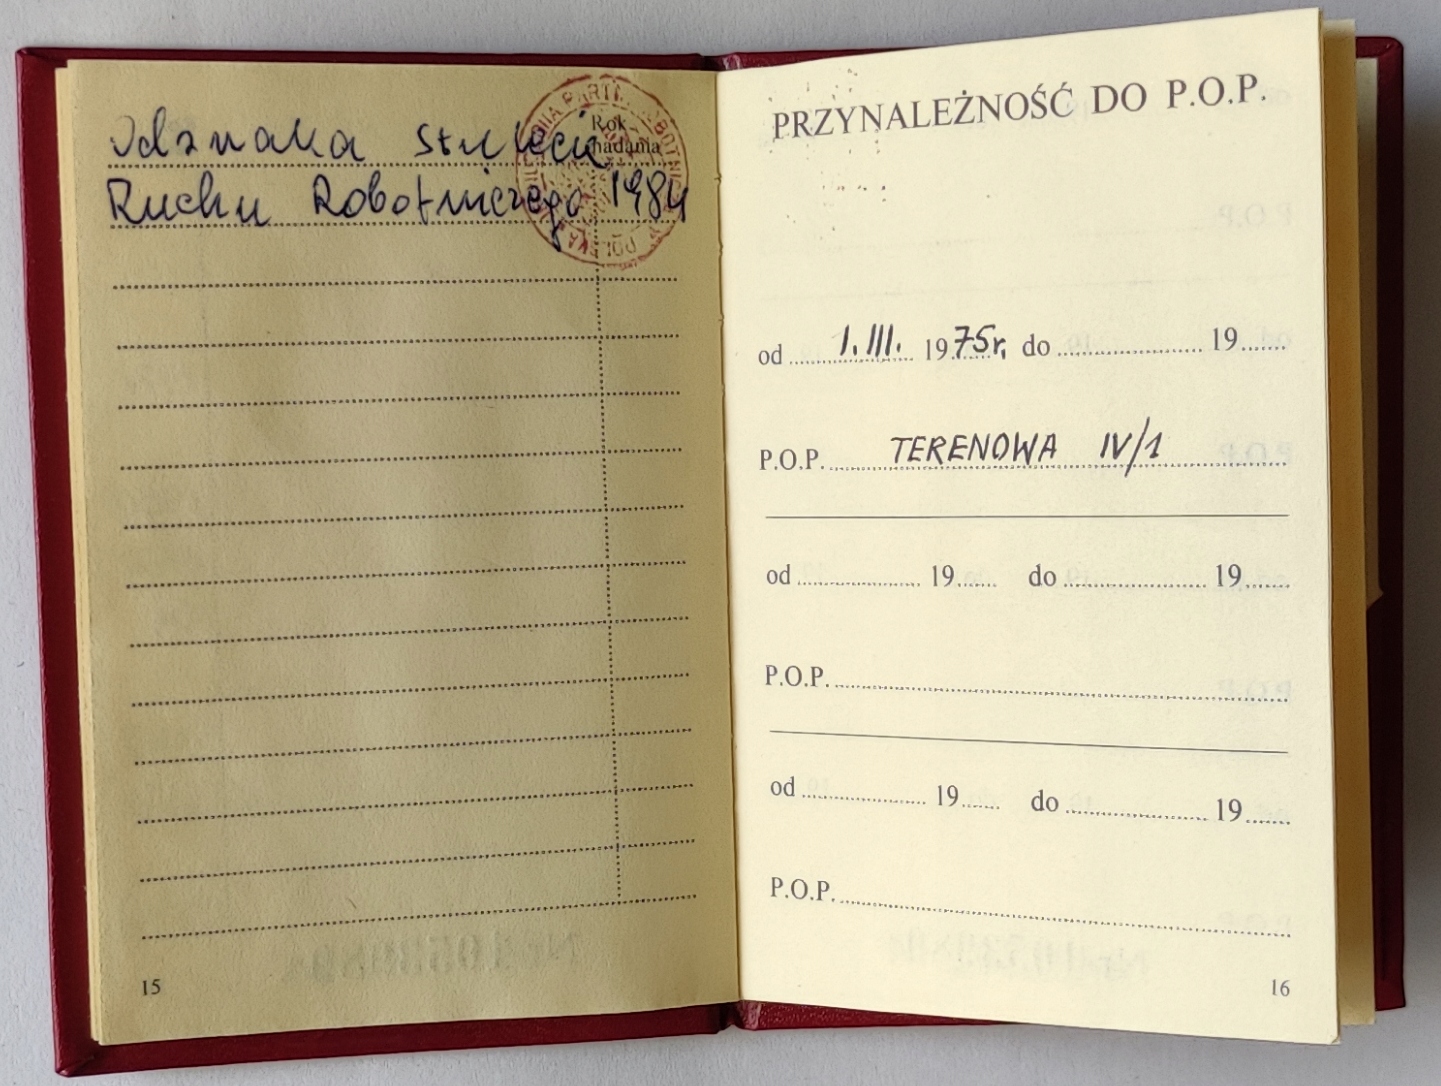 Rok
nadania
Odznaka stulecia
Ruchu Robotniczego 1984
15
PRZYNALEŻNOŚĆ DO P.O.P.
od 1. III. 1975 r. do 19
P.O.P. TERENOWA IV/1
od 19 do 19
P.O.P.
od 19 do 19
P.O.P.
16